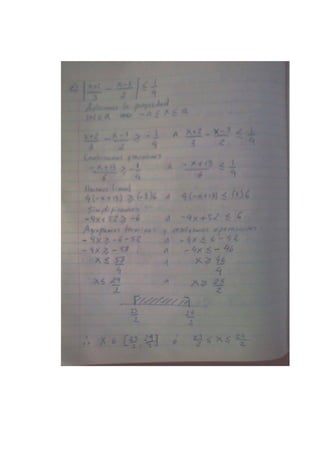 |x+2/3 - x-3/2| ≤ 1/4
Aplicamos la propiedad
|x| ≤ a ⟺ -a ≤ x ≤ a
x+2/3 - x-3/2 ≥ -1/4 ∧ x+2/3 - x-3/2 ≤ 1/4
-x+13/6 ≥ -1/4 ∧ -x+13/6 ≤ 1/4
4(-x+13) ≥ (-1)6 ∧ 4(-x+13) ≤ (1)6
Simplificamos
-4x+52 ≥ -6 ∧ -4x+52 ≤ 6
Agrupamos términos y realizamos operaciones
-4x ≥ -6-52 ∧ -4x ≤ 6-52
-4x ≥ -58 ∧ -4x ≤ -46
x ≤ 58/4 ∧ x ≥ 46/4
x ≤ 29/2 ∧ x ≥ 23/2
23/2 29/2
∴ x ∈ [23/2, 29/2] ó 23/2 ≤ x ≤ 29/2